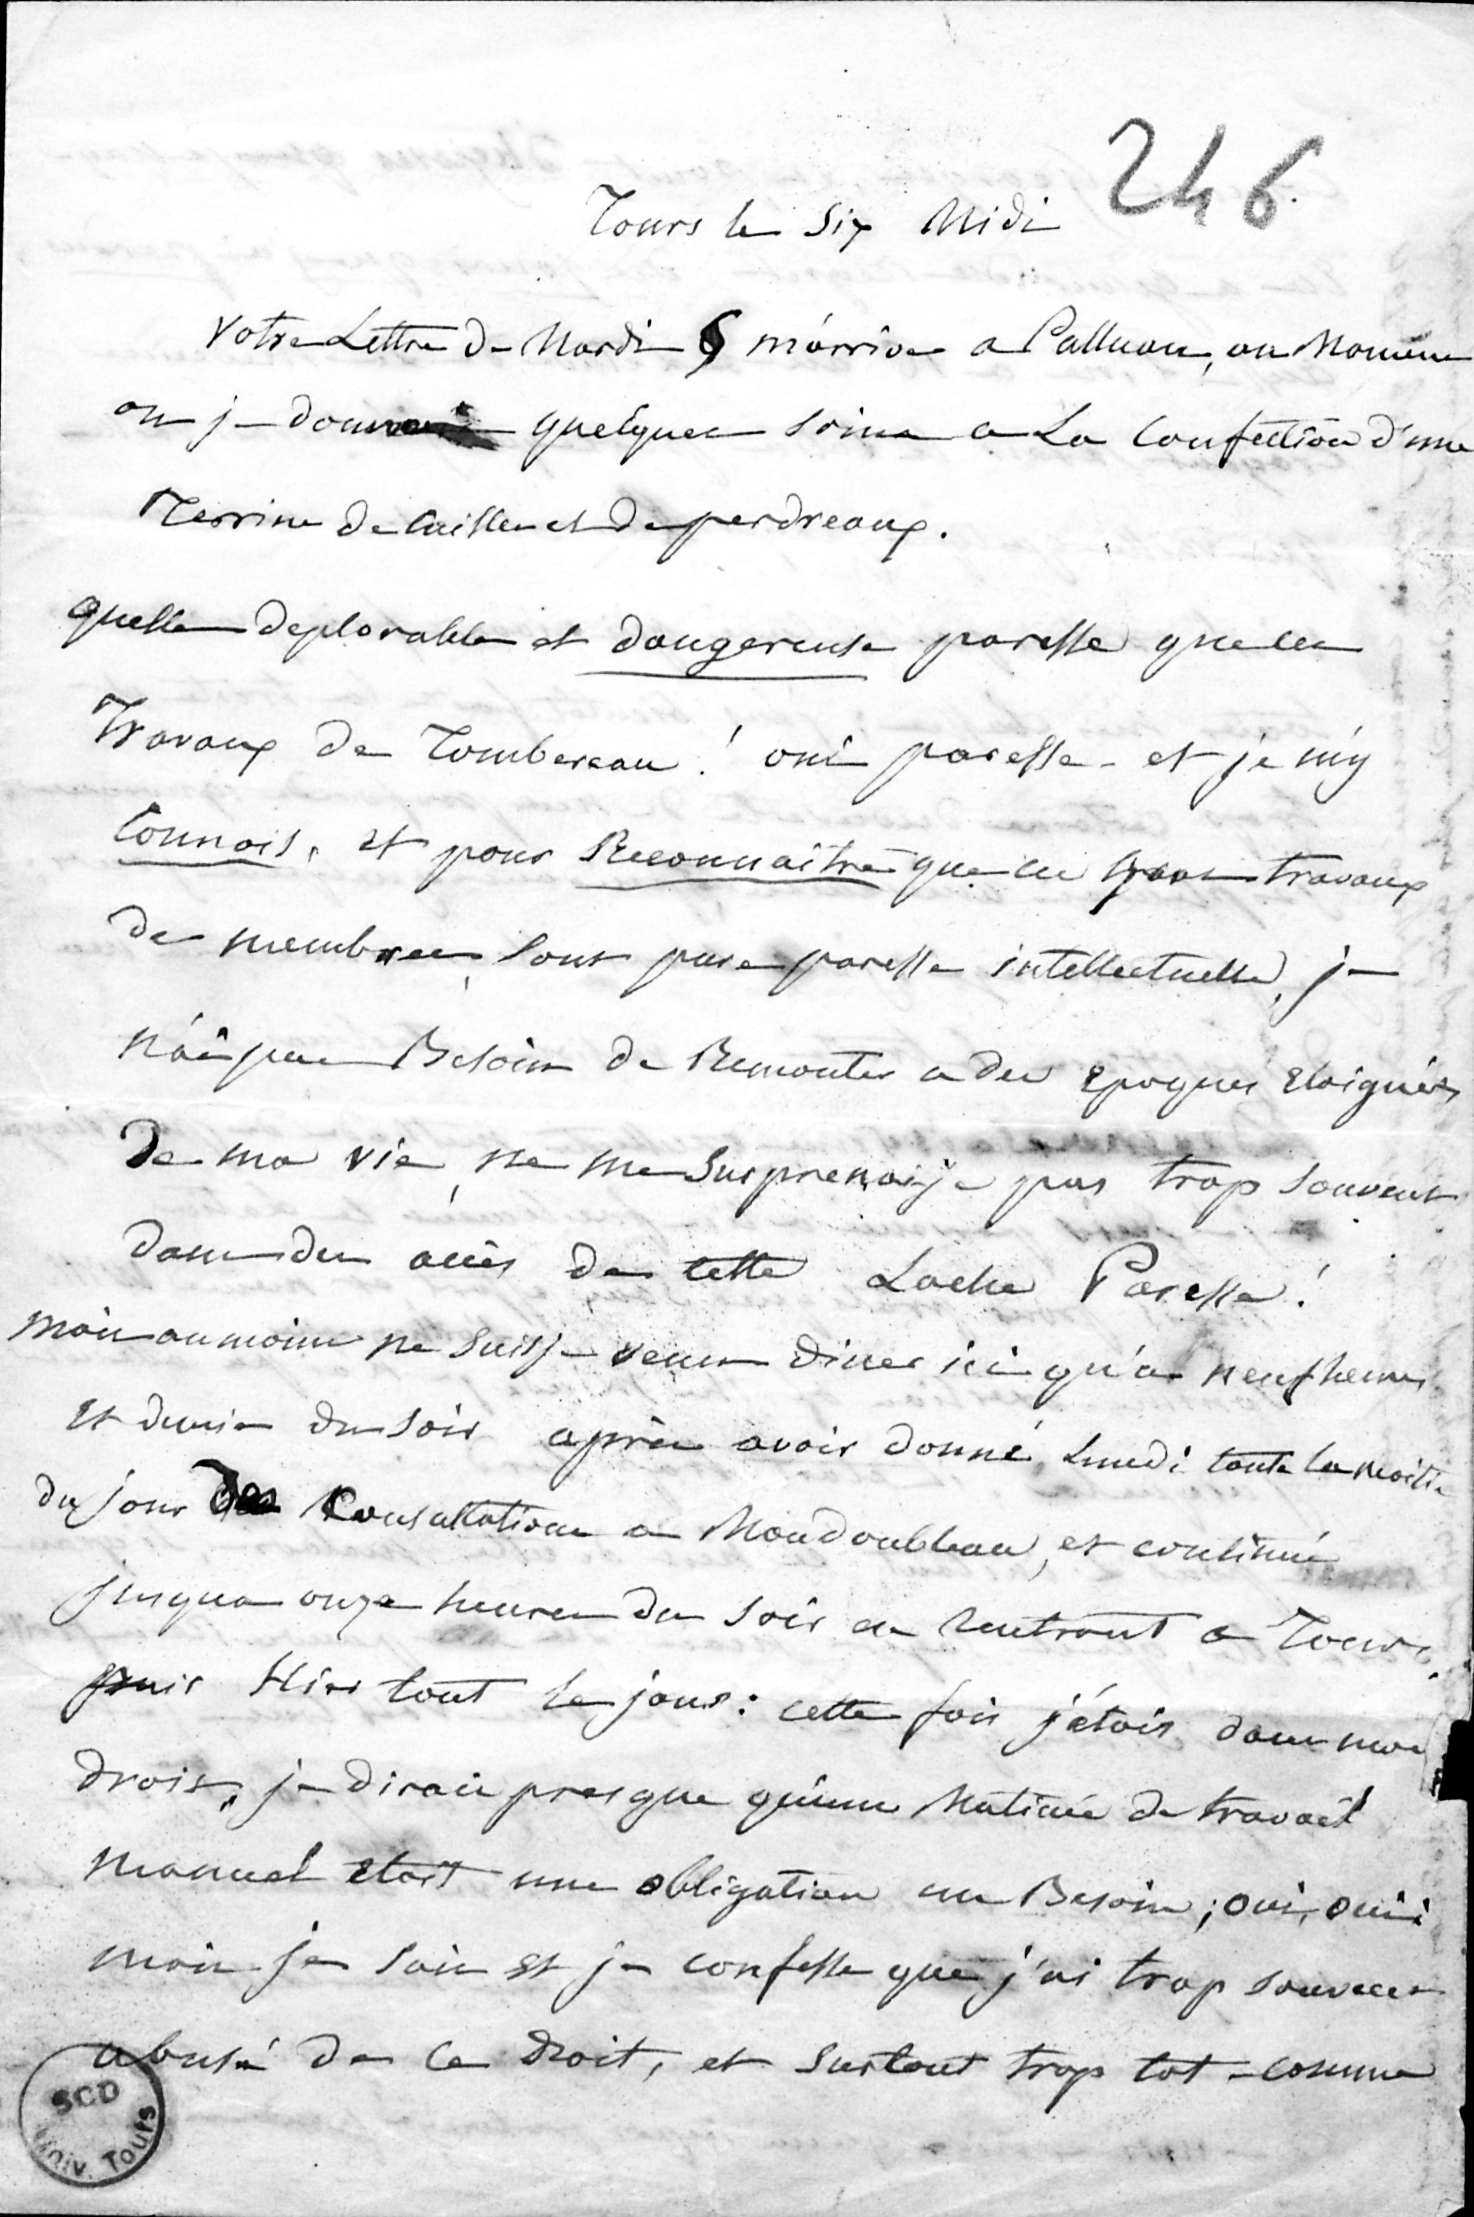 246
Tours le Six Midi
Votre Lettre de Mardi 6 m'arriva a Palluau, au Moment
ou je donnais quelques soins a La Confection d'une
Terrine de Cailles et de perdreaux.
quelle deplorable et dangereuse paresse que les
Travaux de Tombereau ! oui paresse - et je m'y
Connois, et pour Reconnaitre que ces travaux
de membres, sont pure paresse intellectuelle, je
n'ai pas Besoin de Remonter a des epoques eloignées
de ma vie, ne me surprenai-je pas trop souvent
dans des accès de cette Lache Paresse !
mais au moins ne suis je venu diner ici qu'a neuf heures
et demie du soir après avoir donné Lundi toute la moitié
du jour des Consultations a Mondoubleau, et continué
jusqua onze heures du soir en rentrant a Tours,
puis Hier tout le jour : cette fois j'étois dans mon
droit, je dirais presque qu'une Matinée de travail
manuel etoit une obligation un Besoin ; oui, oui
mais je sais et je confesse que j'ai trop souvent
abusé de ce droit, et surtout trop tot - comme
SCD
Univ. Tours